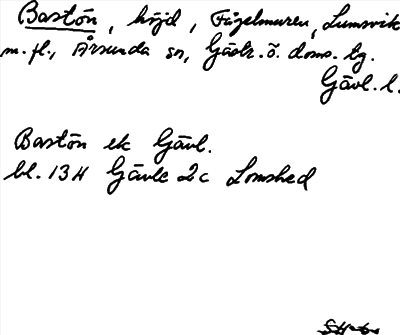 Bastön, höjd, Fågelmuren, Lumsvik
m.fl., Årsunda sn, Gästr. ö. doms. tg.
Gävl. l.
Bastön ek Gävl.
bl. 13H Gävle 2c Lomshed